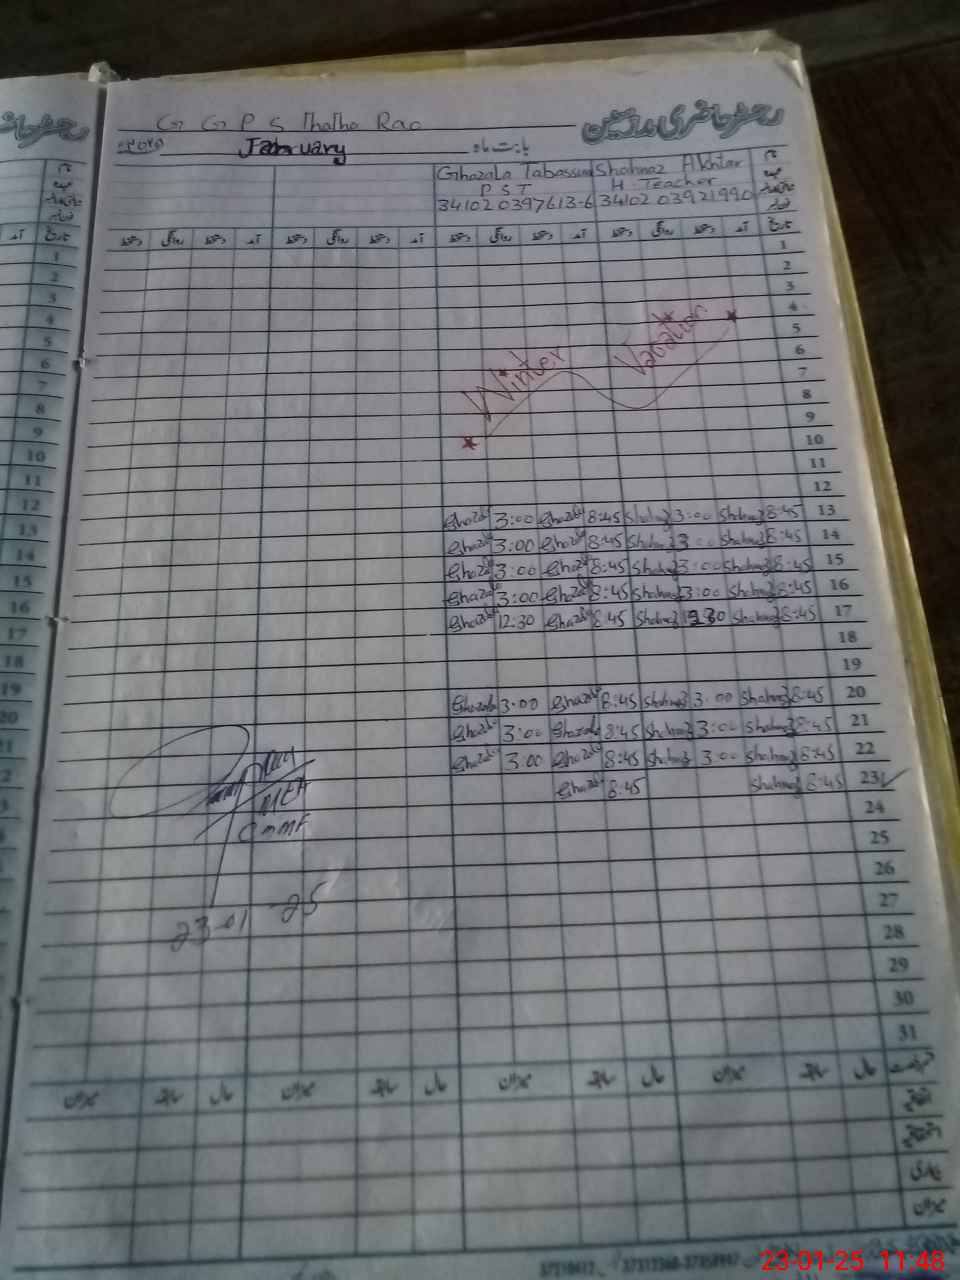 رجسٹر حاضری مدرسین
G G P S Thatha Rao
بابت ماہ January
Ghazala Tabassum Shahnaz Akhtar نام
P S T H Teacher عہدہ
341020397613-6 3410203921990
دستخط روانگی دستخط آمد دستخط روانگی دستخط آمد دستخط روانگی دستخط آمد دستخط روانگی دستخط آمد تاریخ
1
2
3
4
5
6
7
8
9
10
11
12
Winter Vacation
Ghazala 3:00 Ghazala 8:45 Shahnaz 3:00 Shahnaz 8:45 13
Ghazala 3:00 Ghazala 8:45 Shahnaz 3:00 Shahnaz 8:45 14
Ghazala 3:00 Ghazala 8:45 Shahnaz 3:00 Shahnaz 8:45 15
Ghazala 3:00 Ghazala 8:45 Shahnaz 3:00 Shahnaz 8:45 16
Ghazala 12:30 Ghazala 8:45 Shahnaz 12:30 Shahnaz 8:45 17
18
19
Ghazala 3:00 Ghazala 8:45 Shahnaz 3:00 Shahnaz 8:45 20
Ghazala 3:00 Ghazala 8:45 Shahnaz 3:00 Shahnaz 8:45 21
Ghazala 3:00 Ghazala 8:45 Shahnaz 3:00 Shahnaz 8:45 22
Ghazala 8:45 Shahnaz 8:45 23
24
25
26
27
28
29
30
31
MEA
23-01-25
میزان سابقہ حال میزان سابقہ حال میزان سابقہ حال میزان سابقہ حال
اتفاقیہ
استحقاقیہ
بیماری
میزان
23-01-25 11:48